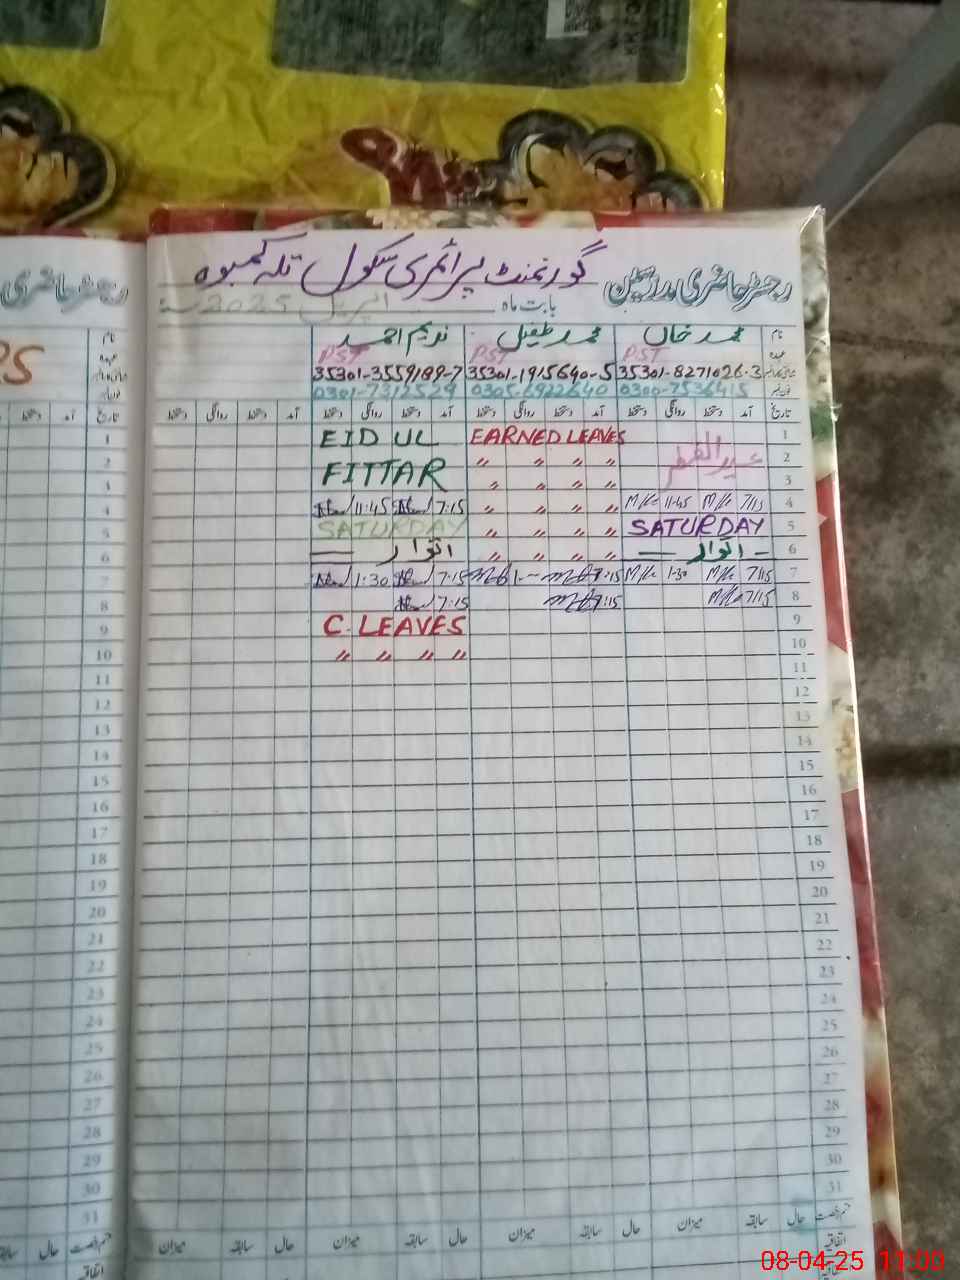 رجسٹر حاضری مدرسین گورنمنٹ پرائمری سکول تلہ کمبوہ
بابت ماہ اپریل 2025
نام محمد خاں محمد طفیل ندیم احمد
عہدہ PST PST PST
35301-8271026-3 35301-1915640-5 35301-3559189-7
0300-7536415 0305-6922640 0301-7312529
تاریخ آمد دستخط روانگی دستخط آمد دستخط روانگی دستخط آمد دستخط روانگی دستخط آمد دستخط روانگی دستخط
1 EARNED LEAVES EID UL
2 عید الفطر " " " " FITTAR
3 " " " "
4 7/15 11:45 " " " " 7:15 11:45
5 SATURDAY " " " " SATURDAY
6 اتوار " " " " اتوار
7 7/15 1:30 7:15 7:15 1:30
8 7/15 7:15 7:15
9 C. LEAVES
10 " " " "
11
12
13
14
15
16
17
18
19
20
21
22
23
24
25
26
27
28
29
30
31
حال سابقہ میزان حال سابقہ میزان حال سابقہ میزان حال سابقہ میزان
اتفاقیہ
رجسٹر حاضری
RS
نام
عہدہ
تاریخ آمد دستخط
1
2
3
4
5
6
7
8
9
10
11
12
13
14
15
16
17
18
19
20
21
22
23
24
25
26
27
28
29
30
31
حال سابقہ
اتفاقیہ
08-04-25 11:00